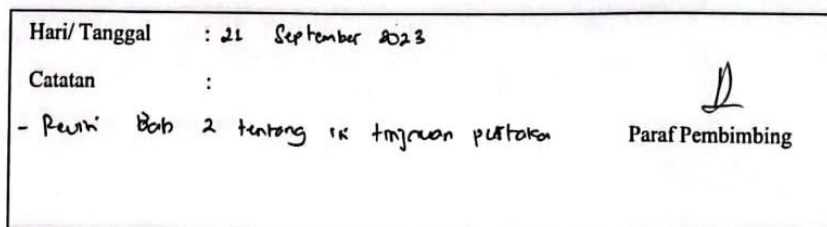 Hari/ Tanggal : 21 September 2023
Catatan :
- Revisi Bab 2 tentang tinjauan pustaka
Paraf Pembimbing